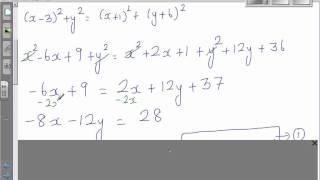 (x-3)²+y² = (x+1)² + (y+6)²
x²-6x+9+y² = x²+2x+1+y²+12y+36
-6x+9 = 2x+12y+37
-2x -2x
-8x-12y = 28
①